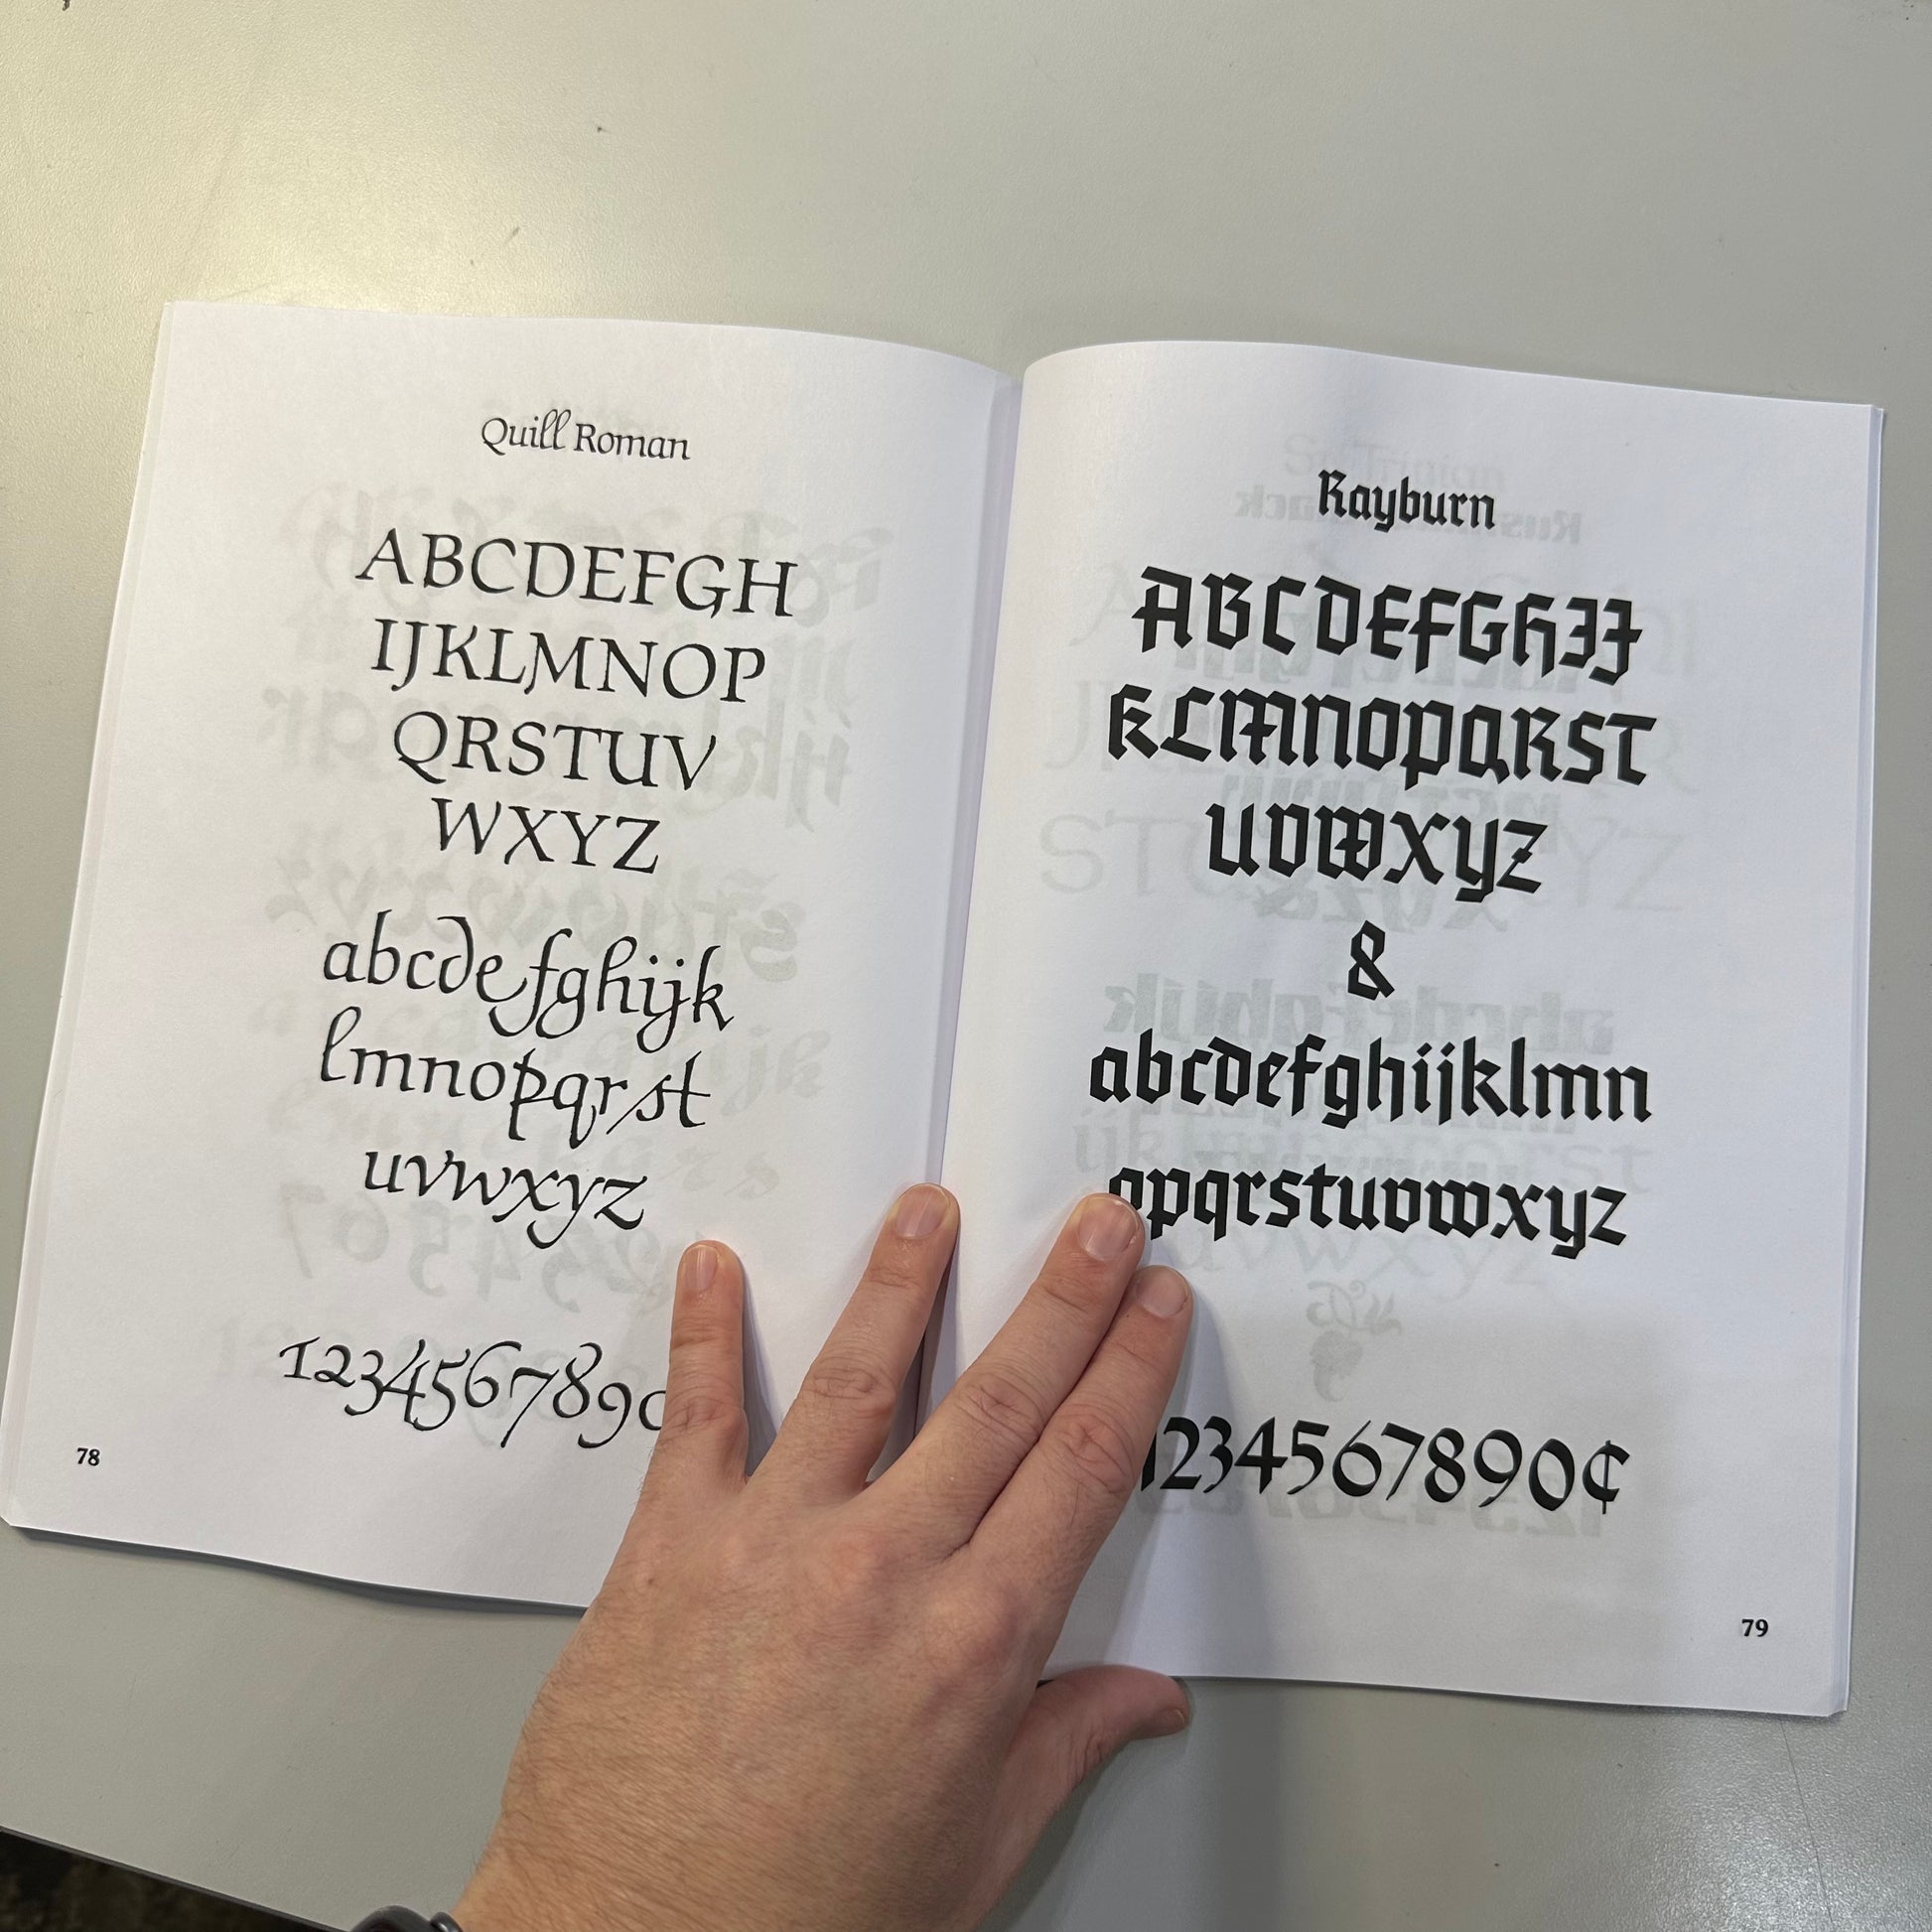 Quill Roman
ABCDEFGH
IJKLMNOP
QRSTUV
WXYZ
abcdefghijk
lmnopqrst
uvwxyz
1234567890
78
Rayburn
ABCDEFGHIJ
KLMNOPQRST
UVWXYZ
&
abcdefghijklmn
opqrstuvwxyz
1234567890¢
79